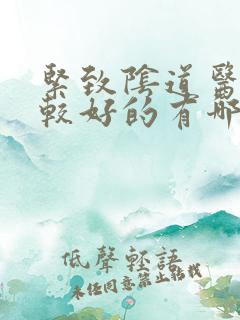 緊致陰道醫
較好的有哪
低聲輕語
未經同意禁止轉載